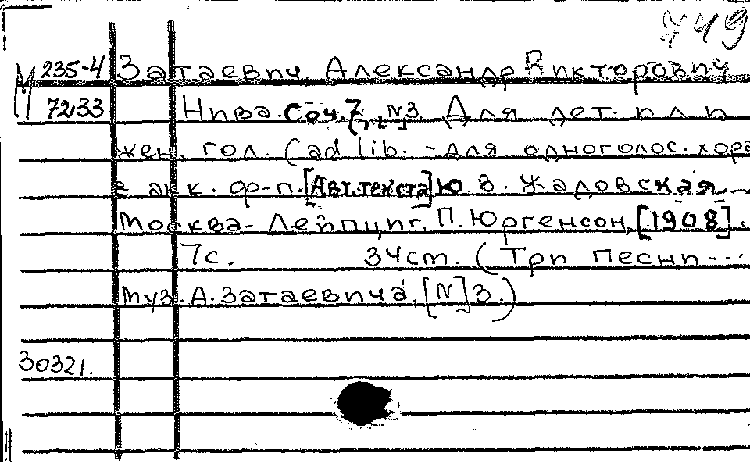 749
М 235-4 Затаевич Александр Викторович
7233 Нива. Соч. 7, №3. Для дет. или
жен. гол. (ad lib. - для одноголос. хора
с акк. ф-п. [Авт. текста] Ю. В. Жадовская
Москва - Лейпциг, П. Юргенсон, [1908].
7с. 34см. (Три песни...
муз. А. Затаевича. [№] 3.)
30321.